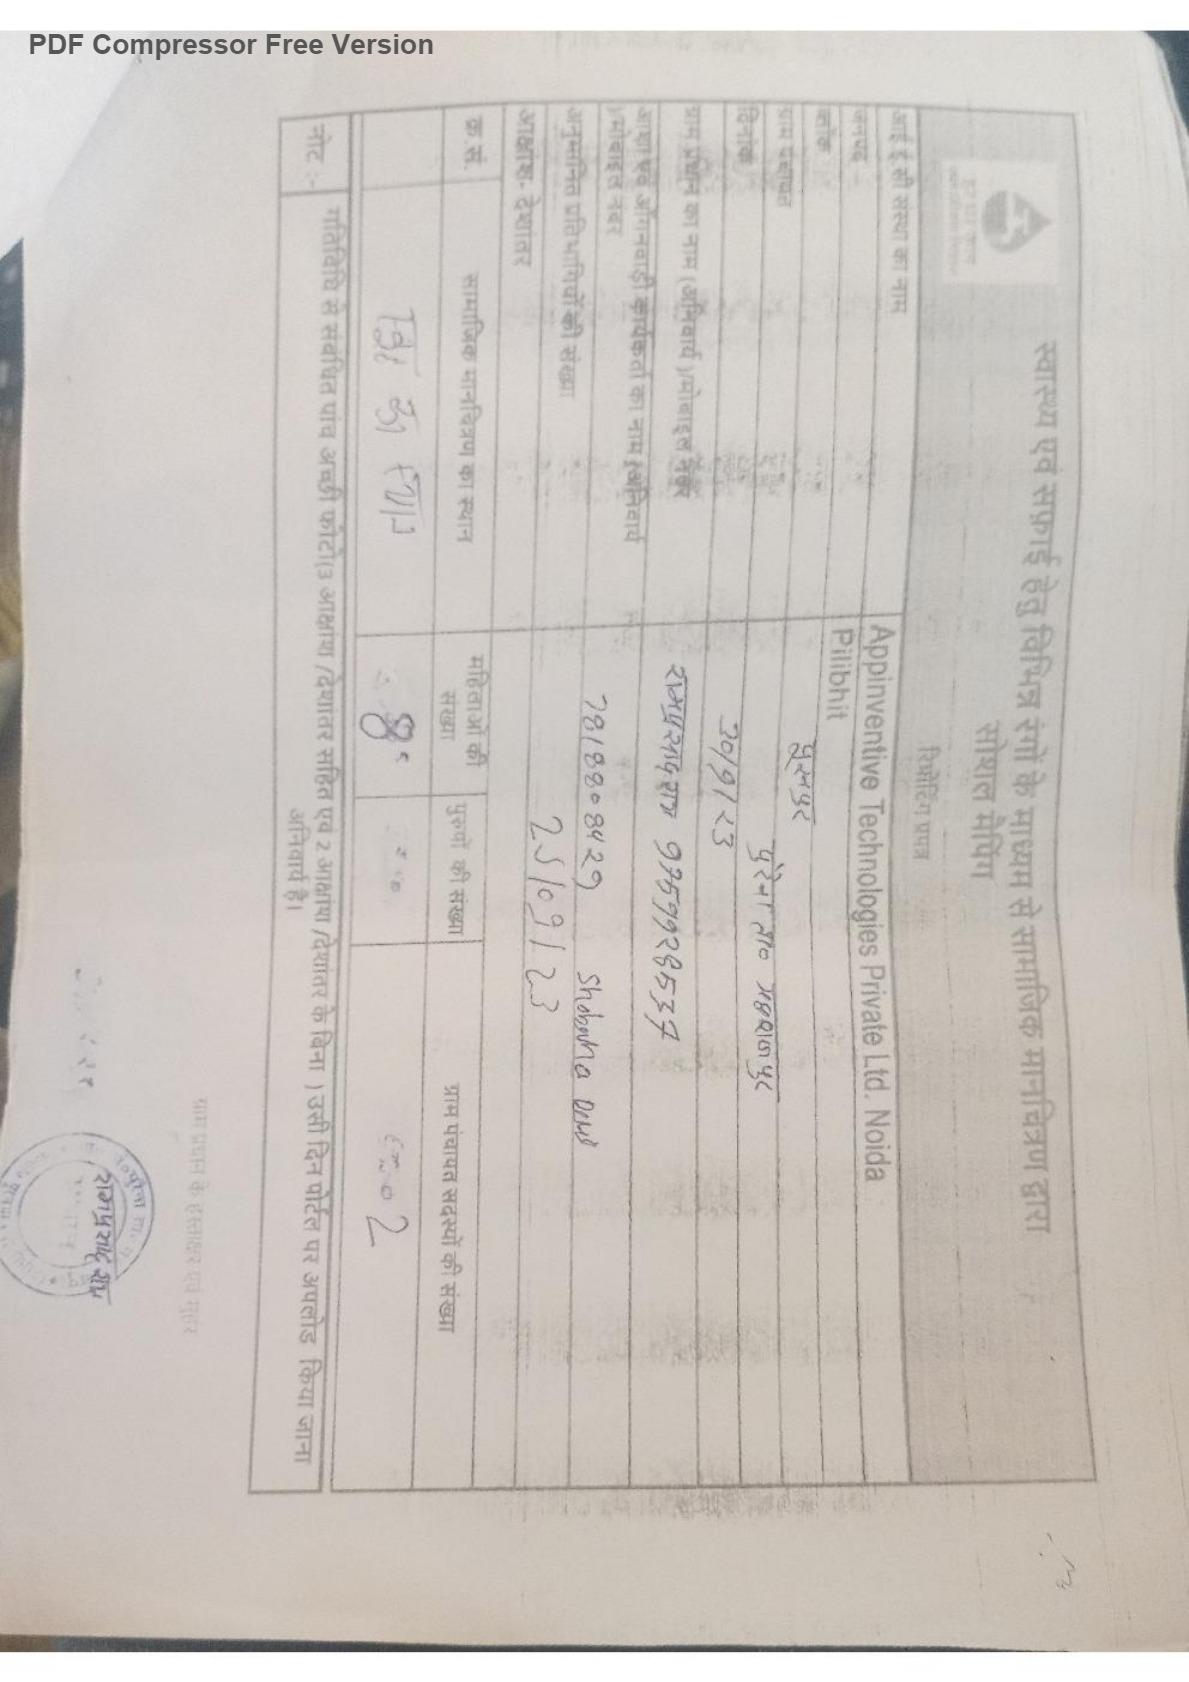 PDF Compressor Free Version
स्वास्थ्य एवं सफाई हेतु विभिन्न रंगों के माध्यम से सामाजिक मानचित्रण द्वारा
सोशल मैपिंग
रिपोर्टिंग प्रपत्र
आई ई सी संस्था का नाम Appinventive Technologies Private Ltd. Noida
जनपद - Pilibhit
ब्लॉक पूरनपुर
ग्राम पंचायत
दिनांक 20/9/23
ग्राम प्रधान का नाम (अनिवार्य )/मोबाइल नंबर रामप्रसाद
आशा एवं आँगनवाड़ी कार्यकर्ता का नाम (अनिवार्य
)/मोबाइल नंबर 7818808429
अनुमानित प्रतिभागियों की संख्या 25/09/23
आक्षांश- देशांतर
क्र.सं. सामाजिक मानचित्रण का स्थान महिलाओं की संख्या पुरुषों की संख्या ग्राम पंचायत सदस्यों की संख्या
2
नोट :- गतिविधि से संबंधित पांच अच्छी फोटो(3 आक्षांश /देशांतर सहित एवं 2 आक्षांश /देशांतर के बिना ) उसी दिन पोर्टल पर अपलोड किया जाना
अनिवार्य है।
ग्राम प्रधान के हस्ताक्षर एवं मुहर